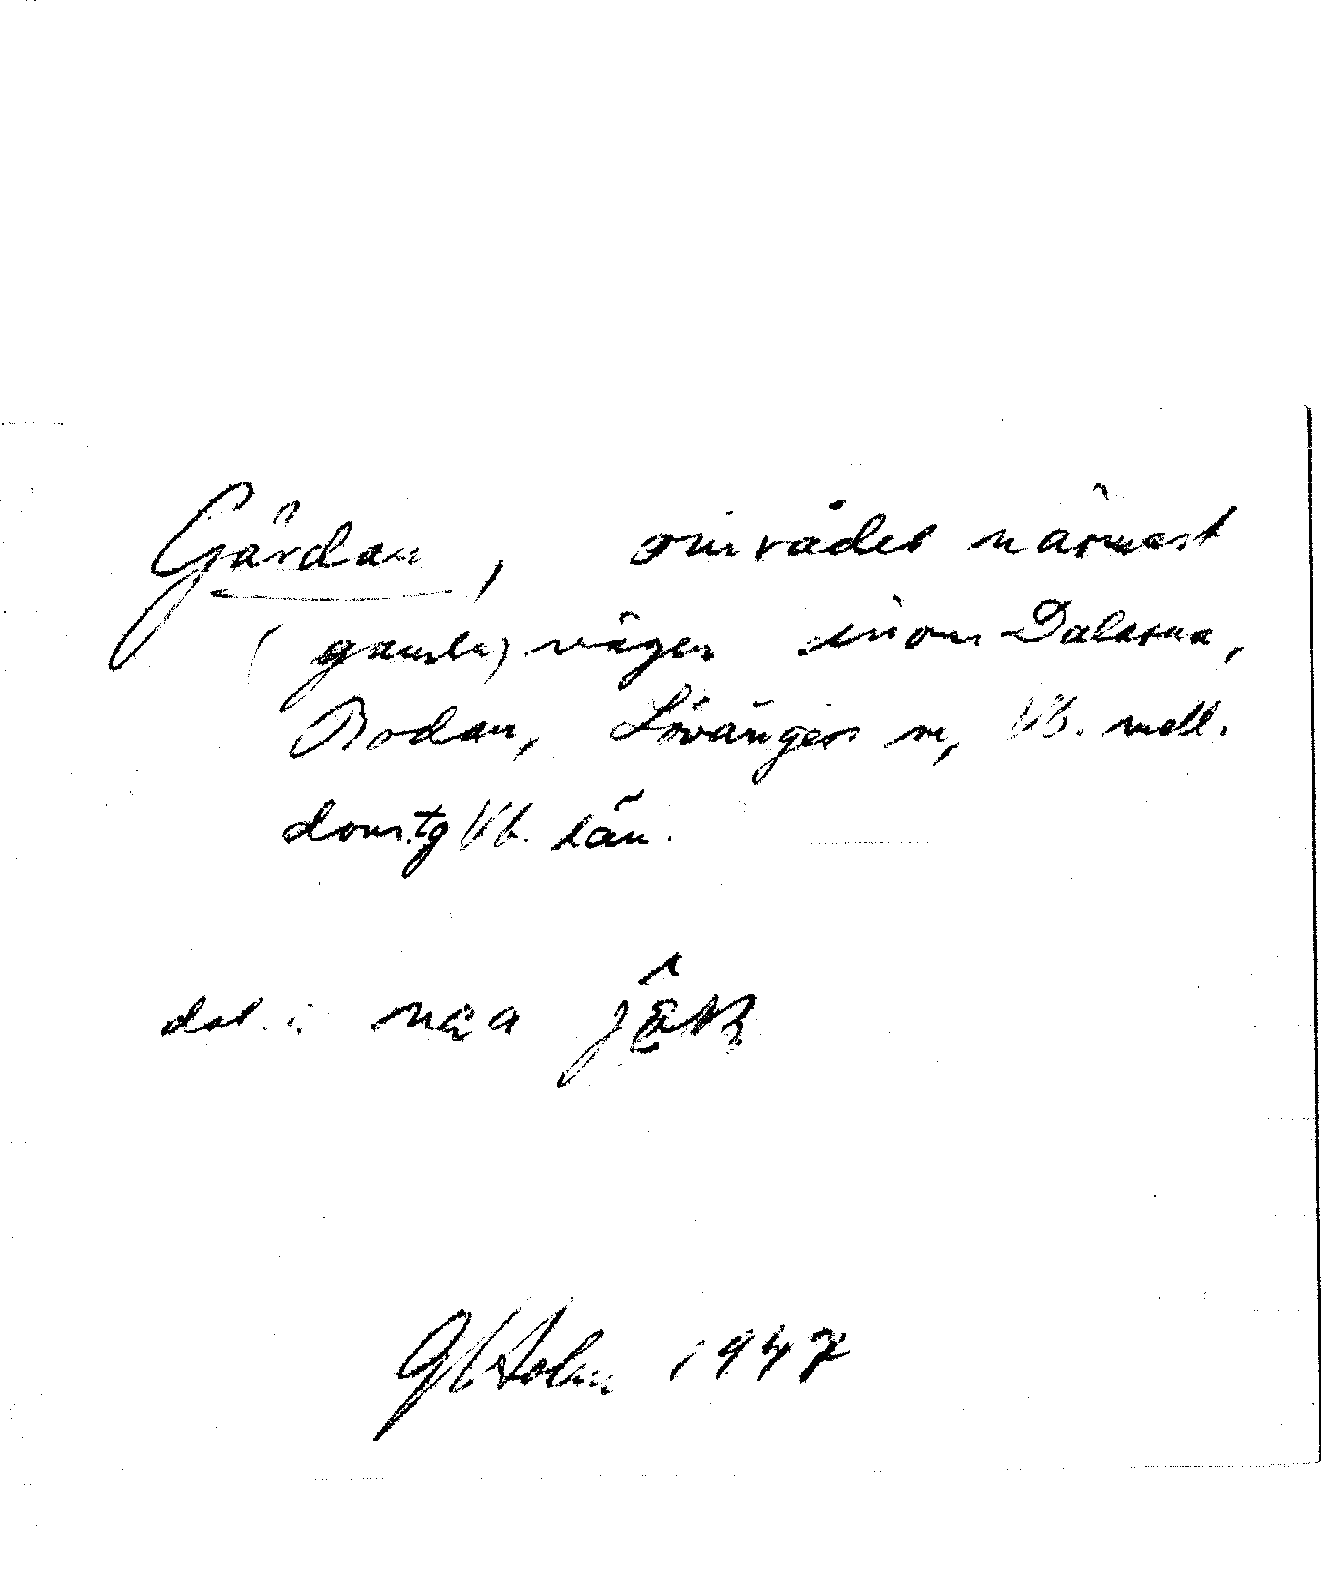 Gärdan, området närmast
(gamla) vägen inom Dalarna,
Bodan, Lövångers sn, Vb. mell.
doms.tg Vb. län.
dat. i
Holm 1947